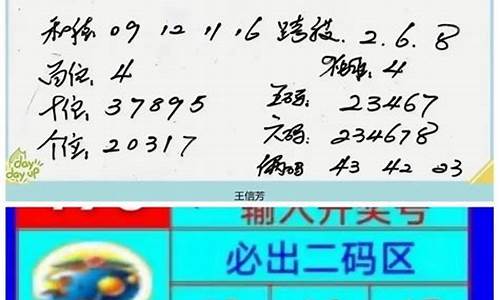 和值: 09 12 11 16 跨度: 2.6.8
百位: 4 独胆: 4
十位: 37895 五码: 23467
个位: 20317 六码: 234678
两码 43 42 23
day
day up
王信芳
输入开奖号
必出二码区